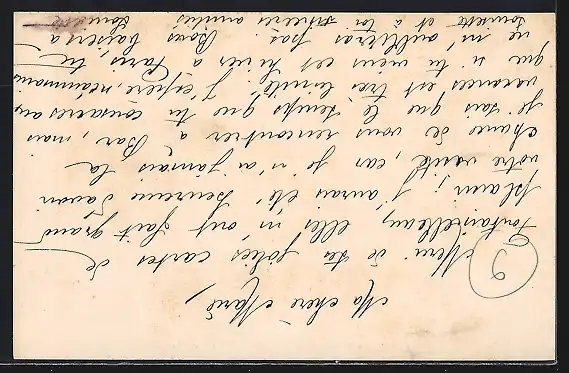 Ma chère Marie,
Merci de tes jolies cartes de
Fontainebleau, elles m'ont fait grand
plaisir; j'aurais été heureuse d'avoir
votre visite, car je n'ai jamais la
chance de vous rencontrer à Bar, mais
je sais que le temps que tu consacres aux
vacances est très limité. J'espère, néanmoins
que si tu viens cet hiver à Paris, tu
ne m'oublieras pas. Bons baisers à
et à toi sincères amitiés